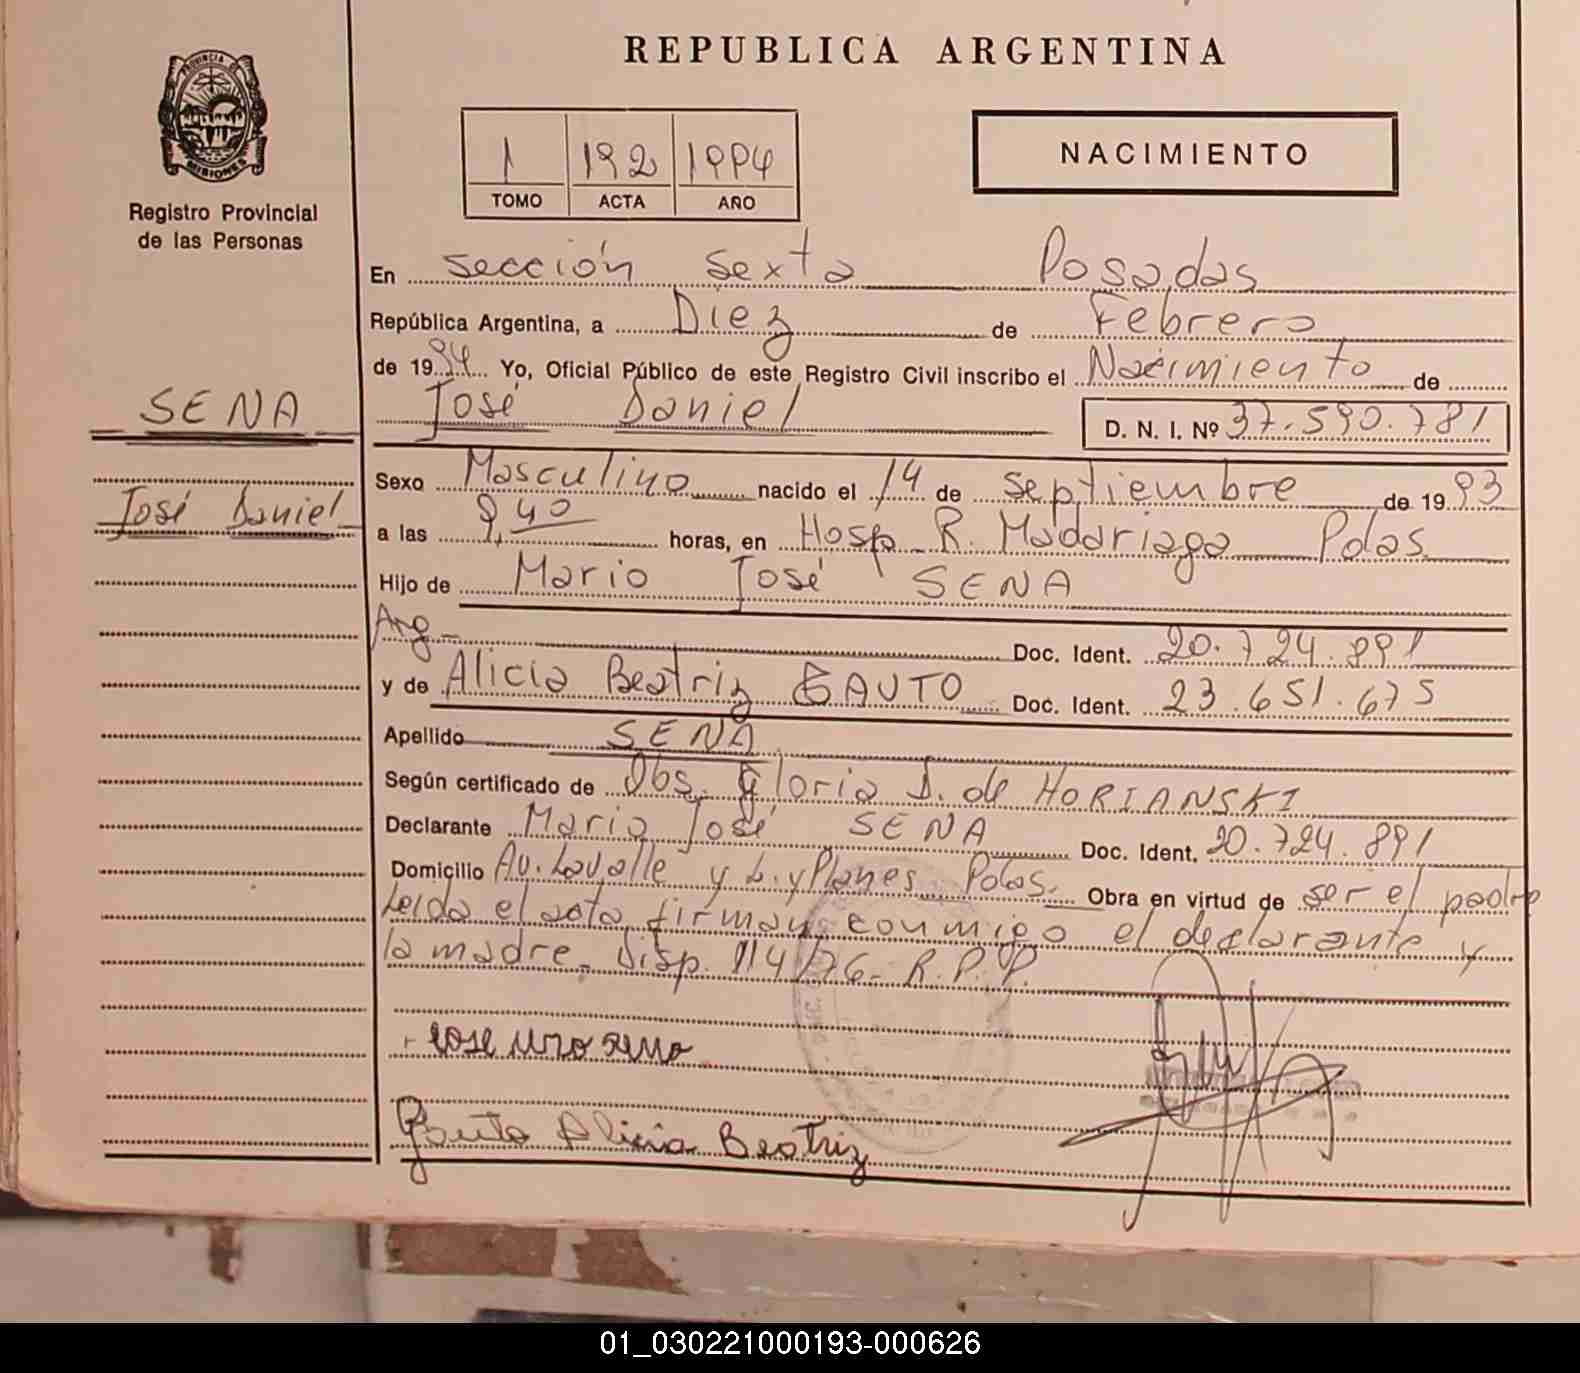 REPUBLICA ARGENTINA
PROVINCIA DE
MISIONES
Registro Provincial
de las Personas
1 192 1994
TOMO ACTA AÑO
NACIMIENTO
En Sección Sexta Posadas
República Argentina, a Diez de Febrero
de 1994 Yo, Oficial Público de este Registro Civil inscribo el Nacimiento de
SENA
José Daniel D. N. I. Nº 37.590.781
José Daniel
Sexo Masculino nacido el 14 de Septiembre de 1993
a las 9,40 horas, en Hosp. R. Madariaga Pdas.
Hijo de Mario José SENA
Arg. Doc. Ident. 20.724.891
y de Alicia Beatriz GAUTO Doc. Ident. 23.651.675
Apellido SENA
Según certificado de Obs. Gloria D. de HORIANSKI
Declarante Mario José SENA Doc. Ident. 20.724.891
Domicilio Av. Lavalle y L. y Planes Pdas. Obra en virtud de ser el padre
Leída el acta firman conmigo el declarante y
la madre. Disp. 114/76- R.P.P.
Gauto Alicia Beatriz
01_030221000193-000626